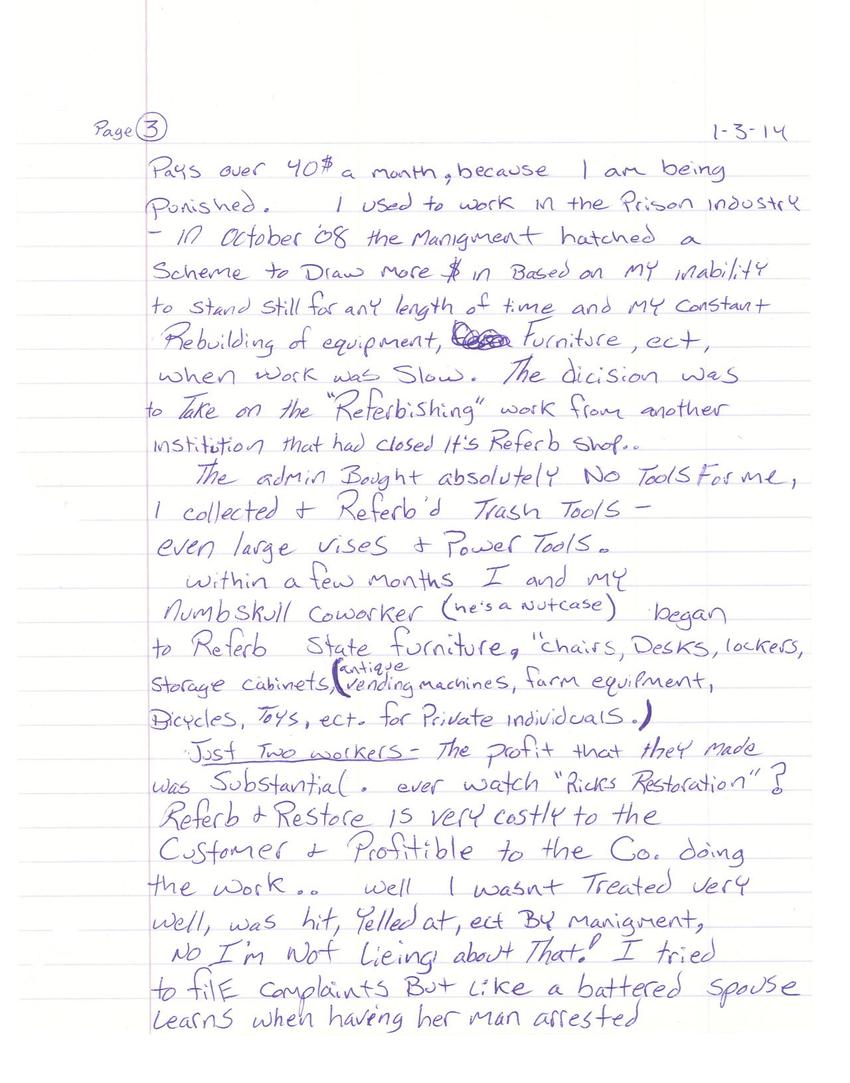 Page 3 1-3-14
Pays over 40$ a month, because I am being
Punished. I used to work in the Prison industry
- in October '08 the Manigment hatched a
Scheme to Draw more $ in Based on my inability
to stand still for any length of time and my constant
Rebuilding of equipment, Furniture, ect,
when work was Slow. The dicision was
to Take on the "Referbishing" work from another
institution that had closed it's Referb shop..
The admin Bought absolutely No Tools For me,
I collected + Referb'd Trash Tools -
even large vises + Power Tools.
within a few months I and my
numbskull coworker (he's a nutcase) began
to Referb State furniture, "chairs, Desks, lockers,
Storage cabinets, (antique vending machines, farm equipment,
Bicycles, Toys, ect. for Private individuals.)
Just Two workers - The profit that they made
was Substantial. ever watch "Ricks Restoration"?
Referb & Restore is very costly to the
Customer & Profitible to the Co. doing
the work.. well I wasnt Treated very
well, was hit, Yelled at, ect By manigment,
No I'm Not Lieing about That! I tried
to file complaints But Like a battered spouse
Learns when having her man arrested